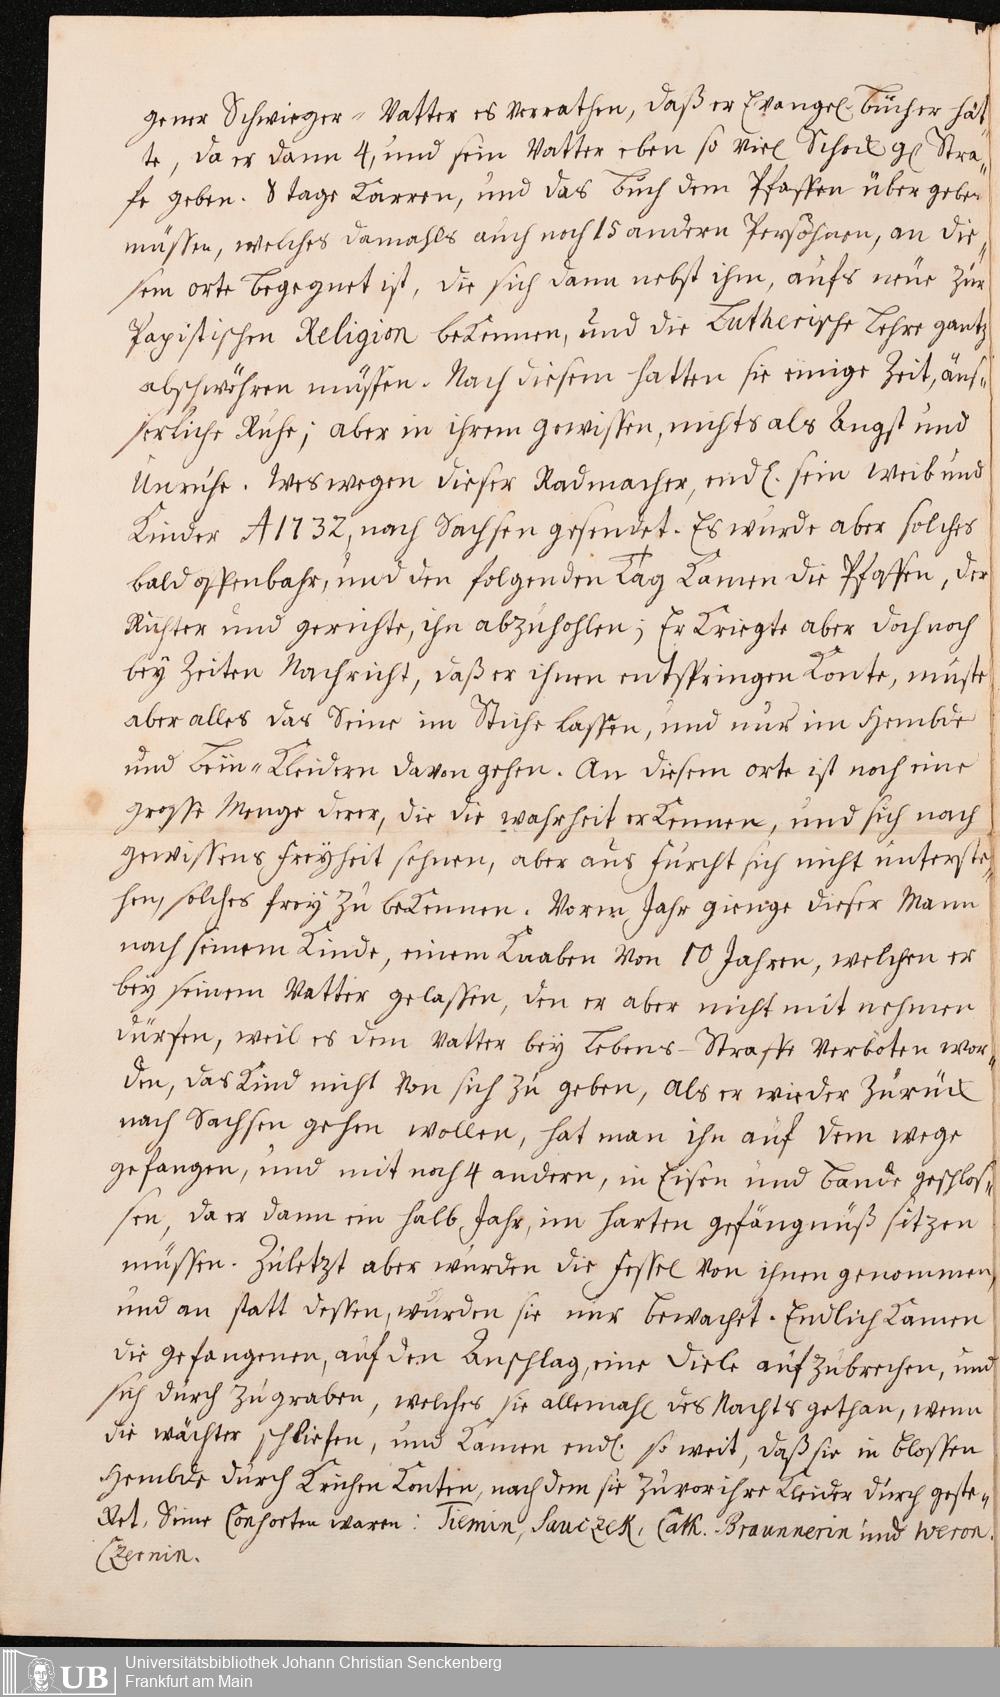 gener Schwieger= Vatter es verrathen, daß er Evangel. Bücher hät=
te, da er dann 4, und sein Vatter eben so viel Schock gl Stra=
fe geben. 8 tage Karren, und das Buch dem Pfaffen über geben
müssen, welches damahls auch noch 15 andern Persohnen, an die=
sem orte begegnet ist, die sich dann nebst ihm, aufs neue zur
Papistischen Religion beKennen, und die Lutherische Lehre gantz
abschwöhren müssen. Nach diesem hatten sie einige Zeit, äus=
serliche Ruhe; aber in ihrem gewissen, nichts als Angst und
Unruhe. Weswegen dieser Radmacher, endl. sein Weib und
Kinder A 1732, nach Sachsen gesendet. Es wurde aber solches
bald offenbahr, und den folgenden Tag Kamen die Pfaffen, der
Richter und gerichte, ihn abzuhohlen; Er Kriegte aber doch noch
bey Zeiten Nachricht, daß er ihnen entspringen Konte, muste
aber alles das Seine im Stiche lassen, und nur im Hembde
und Bein= Kleidern davon gehen. An diesem orte ist noch eine
grosse Menge derer, die die wahrheit erKennen, und sich nach
gewissens Freyheit sehnen, aber aus Furcht sich nicht unterste=
hen, solches frey zu beKennen. Vorm Jahr gienge dieser Mann
nach seinem Kinde, einem Knaben von 10 Jahren, welchen er
bey seinem Vatter gelassen, den er aber nicht mit nehmen
dürfen, weil es dem Vatter bey Lebens-Straffe verboten wor=
den, das Kind nicht von sich zu geben, Als er wieder zurück
nach Sachsen gehen wollen, hat man ihn auf dem wege
gefangen, und mit noch 4 andern, in Eisen und Bande geschlos=
sen, da er dann ein halb Jahr, im harten gefängnüß sitzen
müssen. Zuletzt aber wurden die Fessel von ihnen genommen,
und an statt dessen, wurden sie nur bewachet. Endlich Kamen
die gefangenen, auf den Anschlag, eine Diele aufzubrechen, und
sich durch zu graben, welches sie allemahl des Nachts gethan, wenn
die wächter schliefen, und Kamen endl. so weit, daß sie in blossen
Hembde durch Krichen Konten, nach dem sie zuvor ihre Kleider durch geste=
Ket, Seine Conhorten waren: Tiemin, Sauczek, Cath. Braunnerin und Weron.
Czernin.
Universitätsbibliothek Johann Christian Senckenberg
Frankfurt am Main
UB